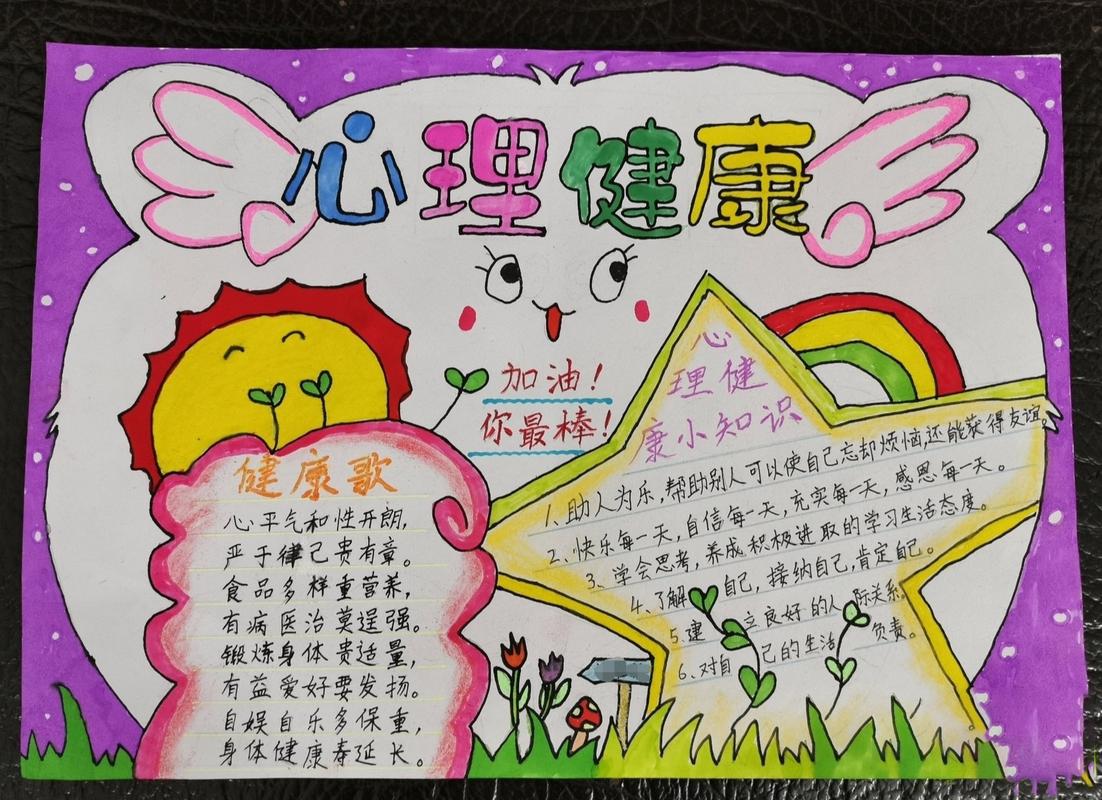 心理健康
加油！
你最棒！
健康歌
心平气和性开朗，
严于律己贵有章。
食品多样重营养，
有病医治莫逞强。
锻炼身体贵适量，
有益爱好要发扬。
自娱自乐多保重，
身体健康寿延长。
心
理健
康小知识
1、助人为乐，帮助别人可以使自己忘却烦恼还能获得友谊。
2、快乐每一天，自信每一天，充实每一天，感恩每一天。
3、学会思考，养成积极进取的学习生活态度。
4、了解自己，接纳自己，肯定自己。
5、建立良好的人际关系。
6、对自己的生活负责。